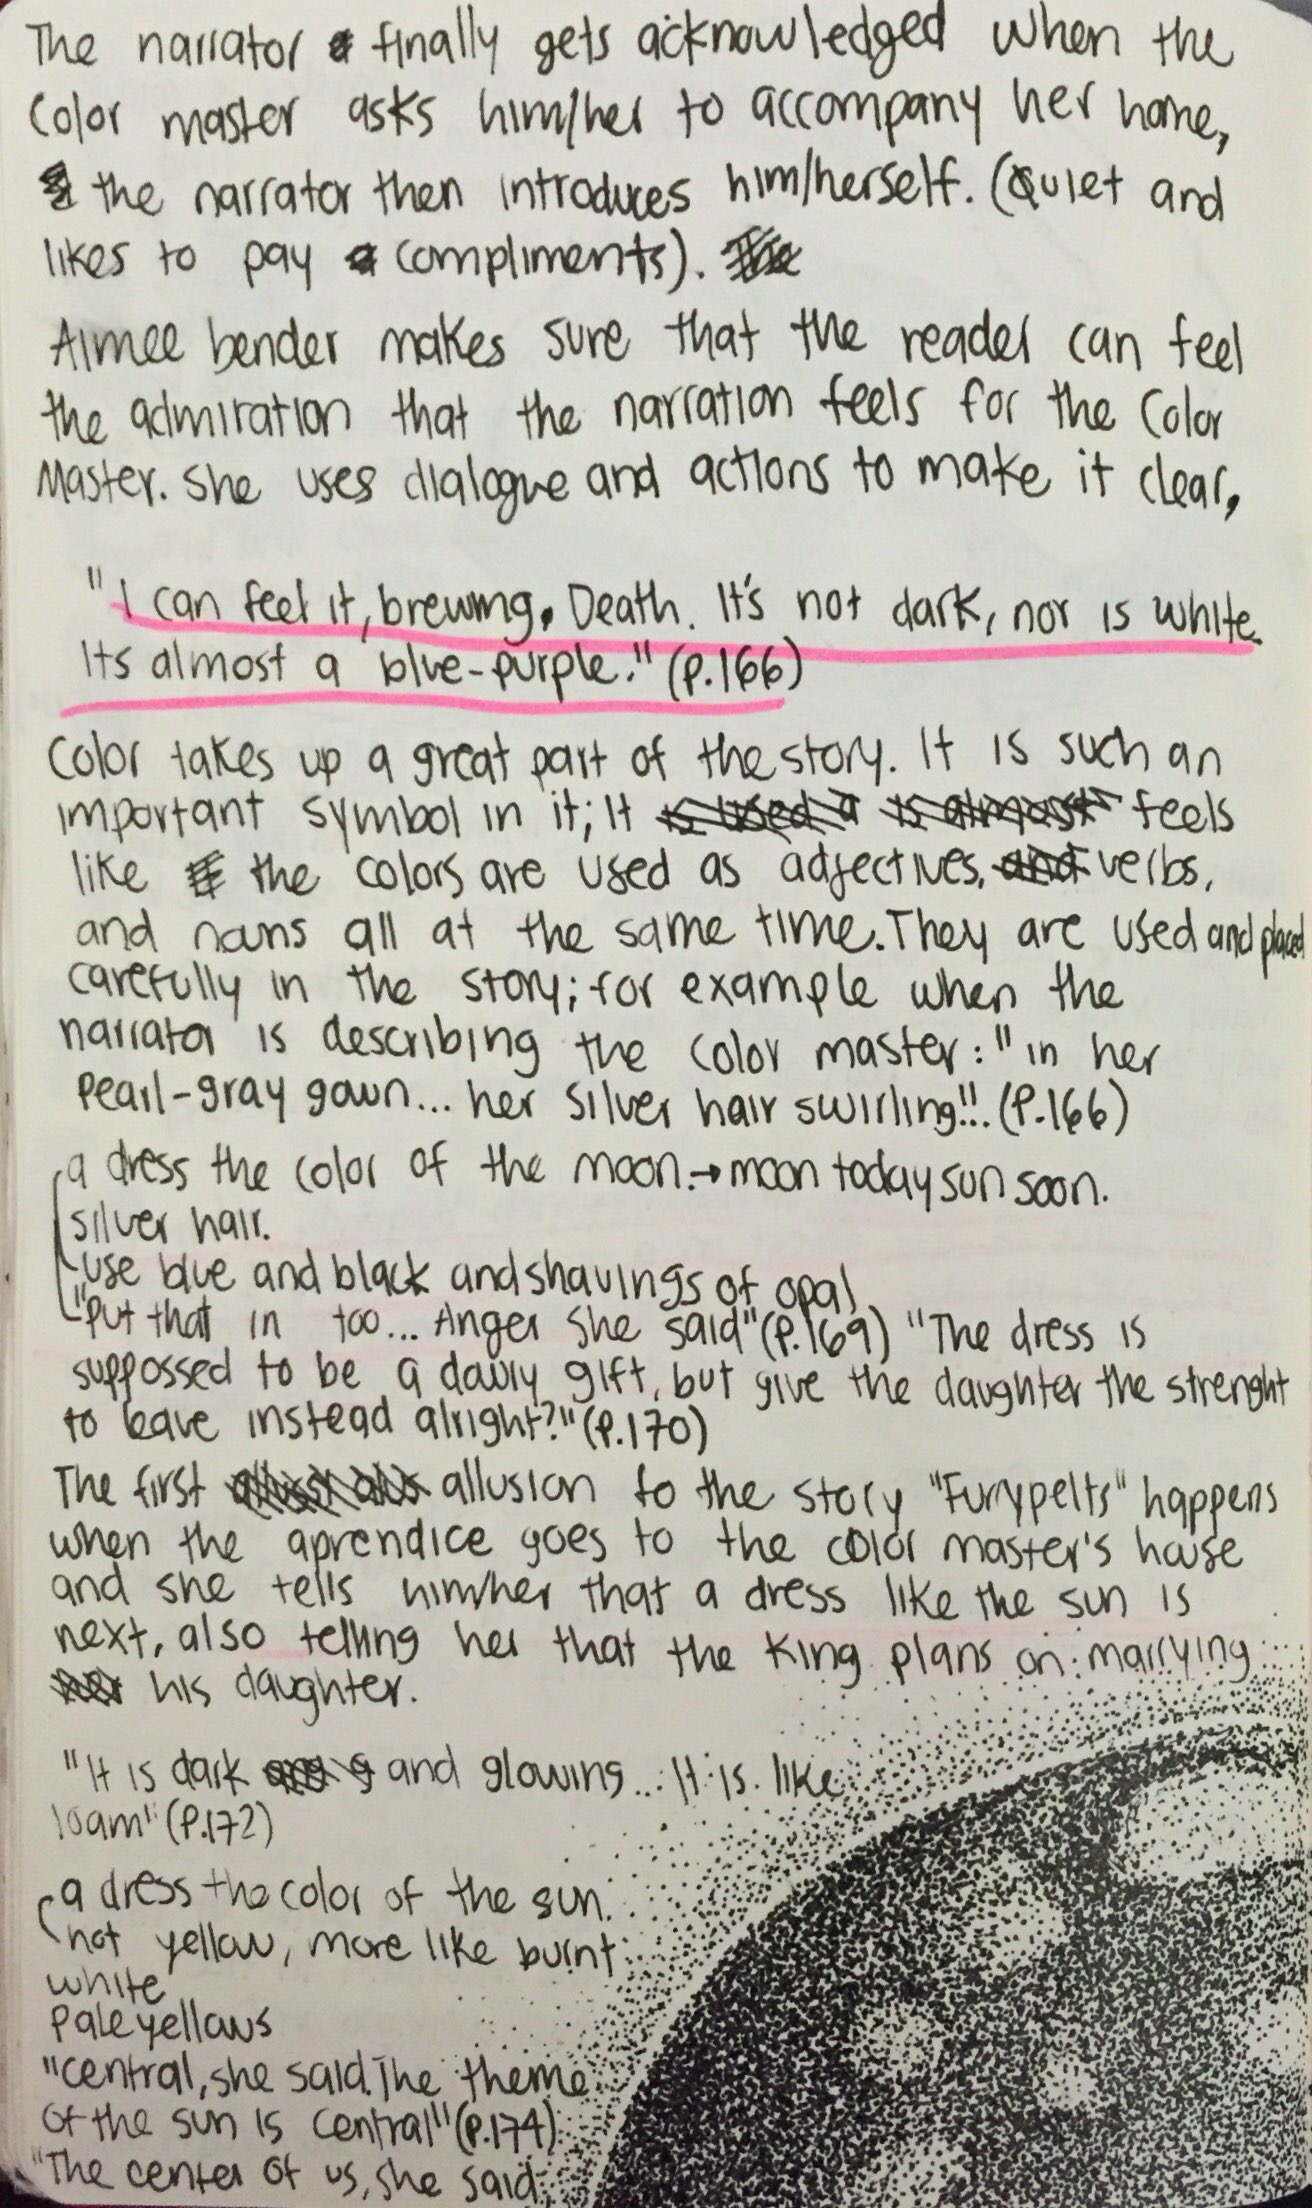 The narrator finally gets acknowledged when the
Color master asks him/her to accompany her home,
the narrator then introduces him/herself. (Quiet and
likes to pay compliments).
Aimee bender makes sure that the reader can feel
the admiration that the narration feels for the Color
Master. She uses dialogue and actions to make it clear,
"I can feel it, brewing. Death. It's not dark, nor is white.
Its almost a blue-purple." (P.166)
Color takes up a great part of the story. It is such an
important symbol in it; It feels
like the colors are used as adjectives, verbs,
and nouns all at the same time. They are used and placed
carefully in the story; for example when the
narrator is describing the color master: "in her
Pearl-gray gown... her silver hair swirling!!. (P.166)
a dress the color of the moon.→moon today sun soon.
silver hair.
use blue and black and shavings of opal
"Put that in too... Anger she said"(P.169) "The dress is
suppossed to be a dowry gift, but give the daughter the strenght
to leave instead alright?"(P.170)
The first allusion to the story "Furrypelts" happens
when the aprendice goes to the color master's house
and she tells him/her that a dress like the sun is
next, also telling her that the King plans on marrying
his daughter.
"It is dark and glowing... It is like
loam"(P.172)
a dress the color of the sun.
not yellow, more like burnt
white
Pale yellows
"Central, she said. The theme
of the sun is central"(P.174)
"The center of us, she said,